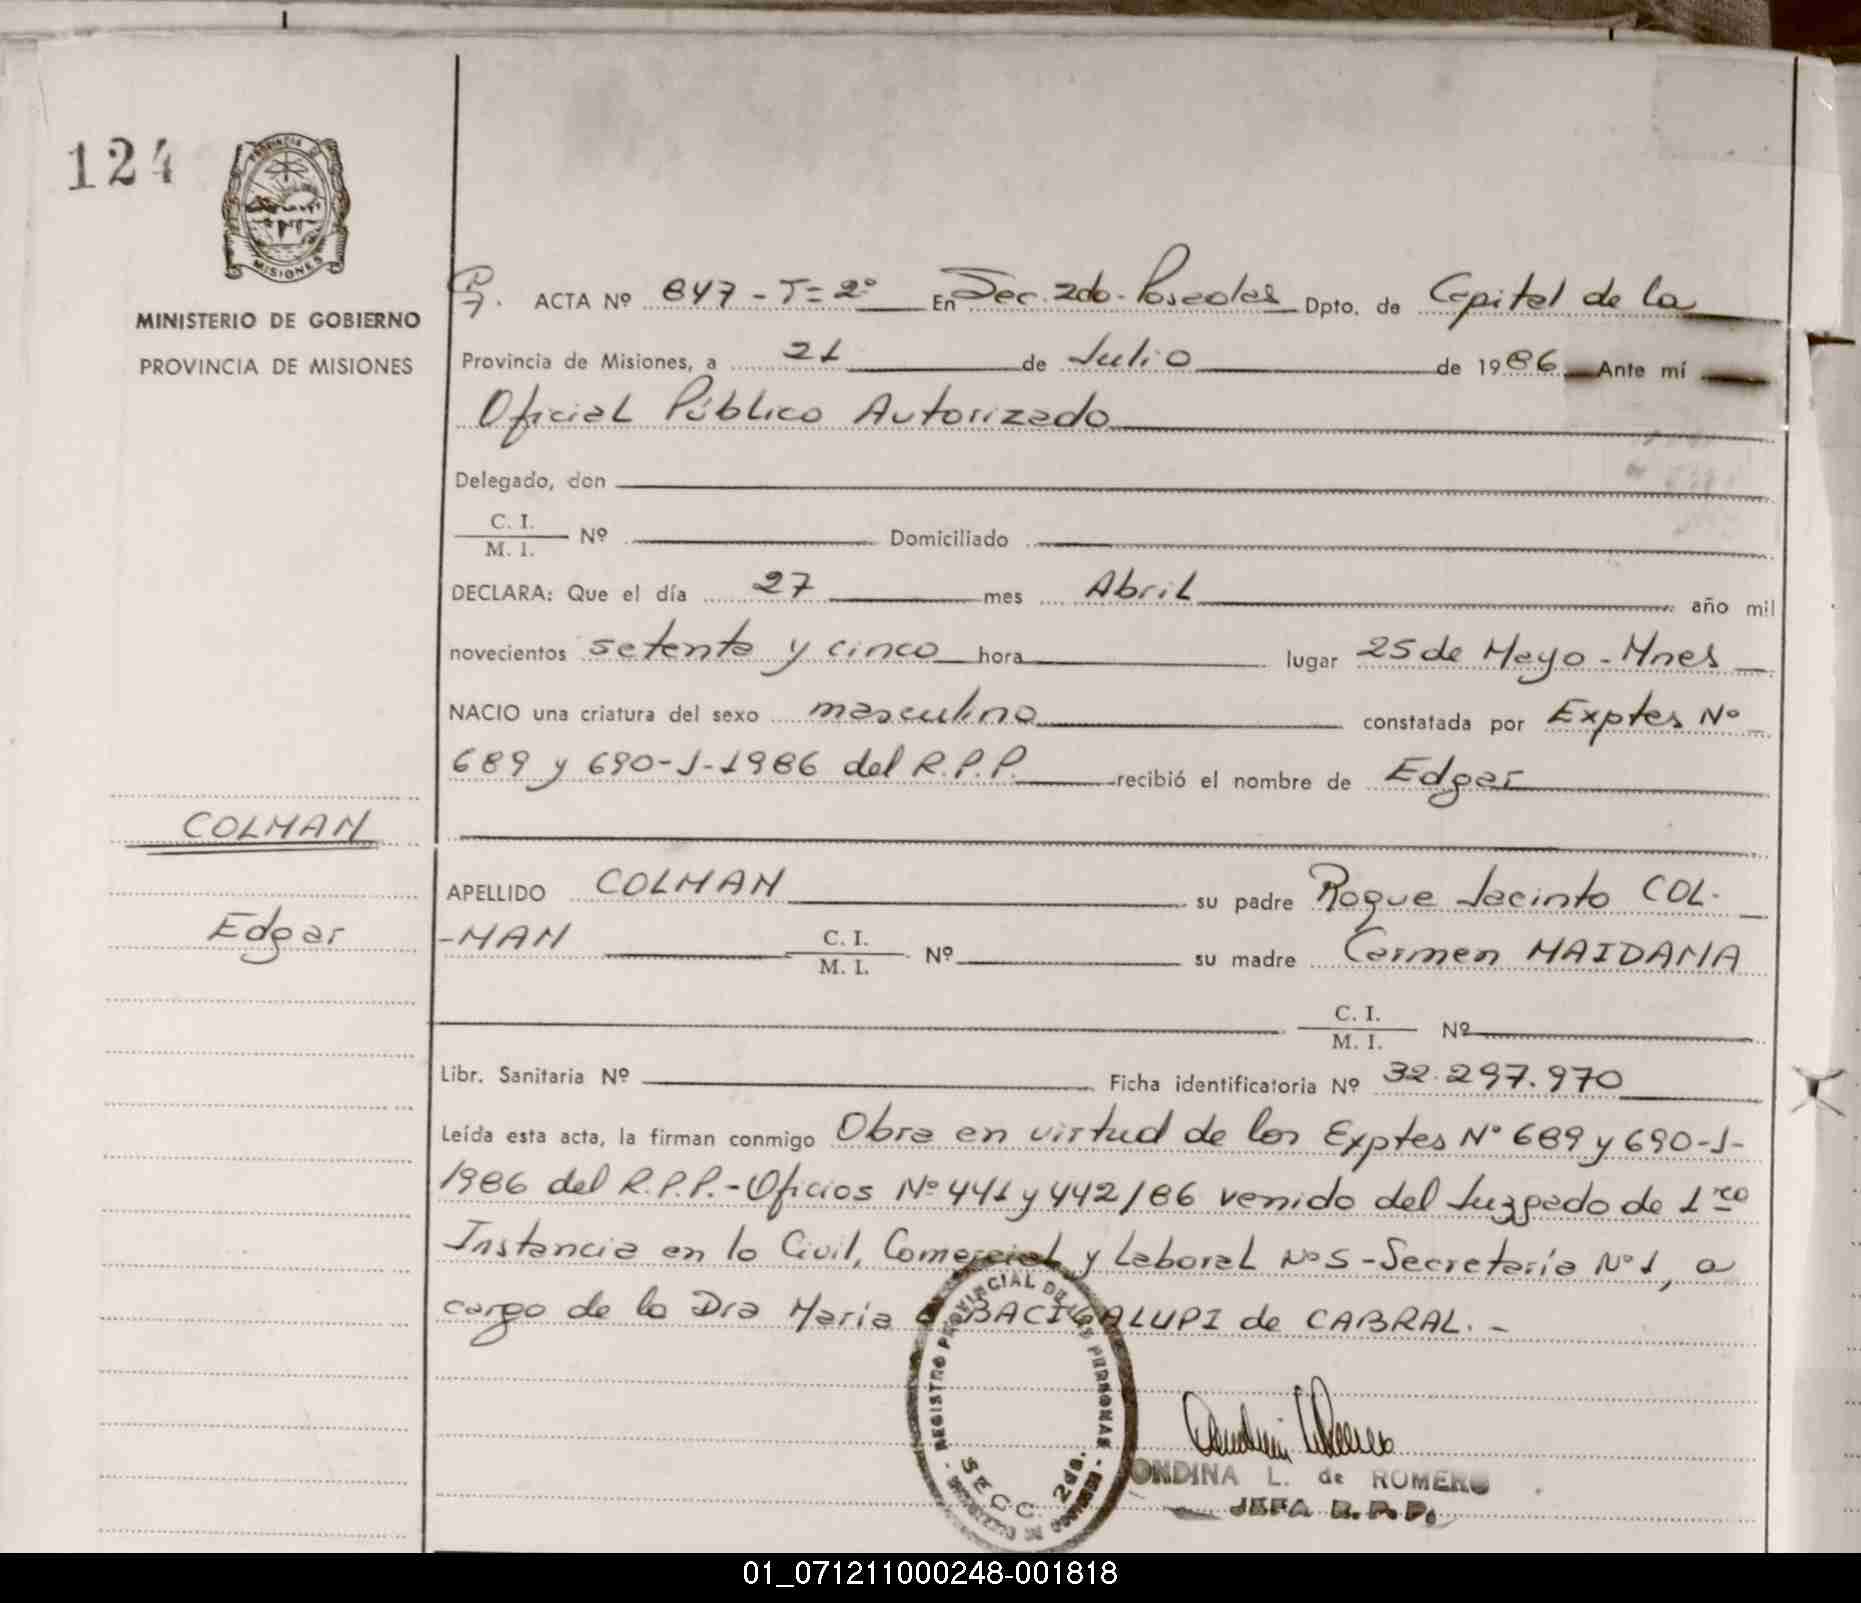 124
PROVINCIA D
MISIONES
MINISTERIO DE GOBIERNO
PROVINCIA DE MISIONES
ACTA Nº 847 - T= 2º En Sec. 2do. Posadas Dpto. de Capital de la
Provincia de Misiones, a 21 de Julio de 1986 Ante mí
Oficial Público Autorizado
Delegado, don
C. I.
M. I. Nº Domiciliado
DECLARA: Que el día 27 mes Abril año mil
novecientos setenta y cinco hora lugar 25 de Mayo - Mnes
NACIO una criatura del sexo masculino constatada por Exptes Nº
689 y 690-J-1986 del R.P.P. recibió el nombre de Edgar
COLMAN
Edgar
APELLIDO COLMAN su padre Roque Jacinto COL-
-MAN C. I.
M. I. Nº su madre Carmen MAIDANA
C. I.
M. I. Nº
Libr. Sanitaria Nº Ficha identificatoria Nº 32.297.970
Leída esta acta, la firman conmigo Obra en virtud de los Exptes Nº 689 y 690-J-
1986 del R.P.P.- Oficios Nº 441 y 442/86 venido del Juzgado de 1ra
Instancia en lo Civil, Comercial y Laboral Nº 5 - Secretaría Nº 1, a
cargo de la Dra María BACIGALUPI de CABRAL. -
REGISTRO PROVINCIAL DE LAS PERSONAS
SECC. 2da.
ONDINA L. de ROMERO
JEFA R.P.P.
01_071211000248-001818